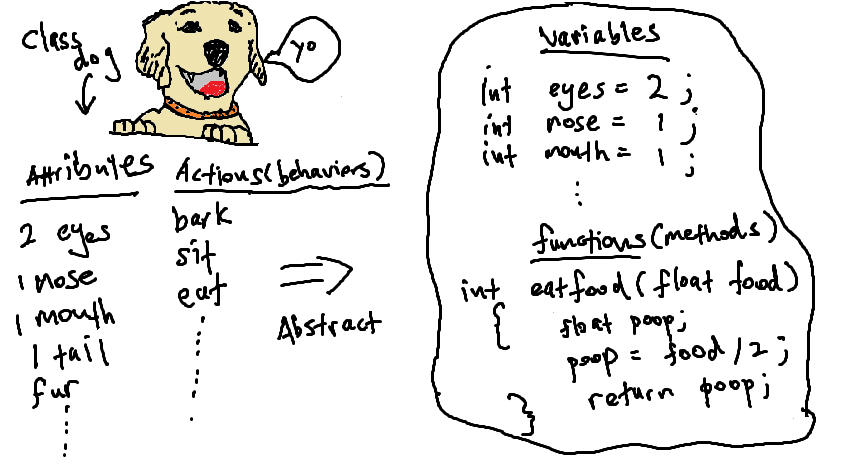 class dog
yo
Attributes
2 eyes
1 nose
1 mouth
1 tail
fur
Actions(behaviers)
bark
sit
eat
Abstract
variables
int eyes = 2 ;
int nose = 1 ;
int mouth = 1 ;
functions (methods)
int eatfood ( float food )
{
float poop;
poop = food / 2 ;
return poop;
}